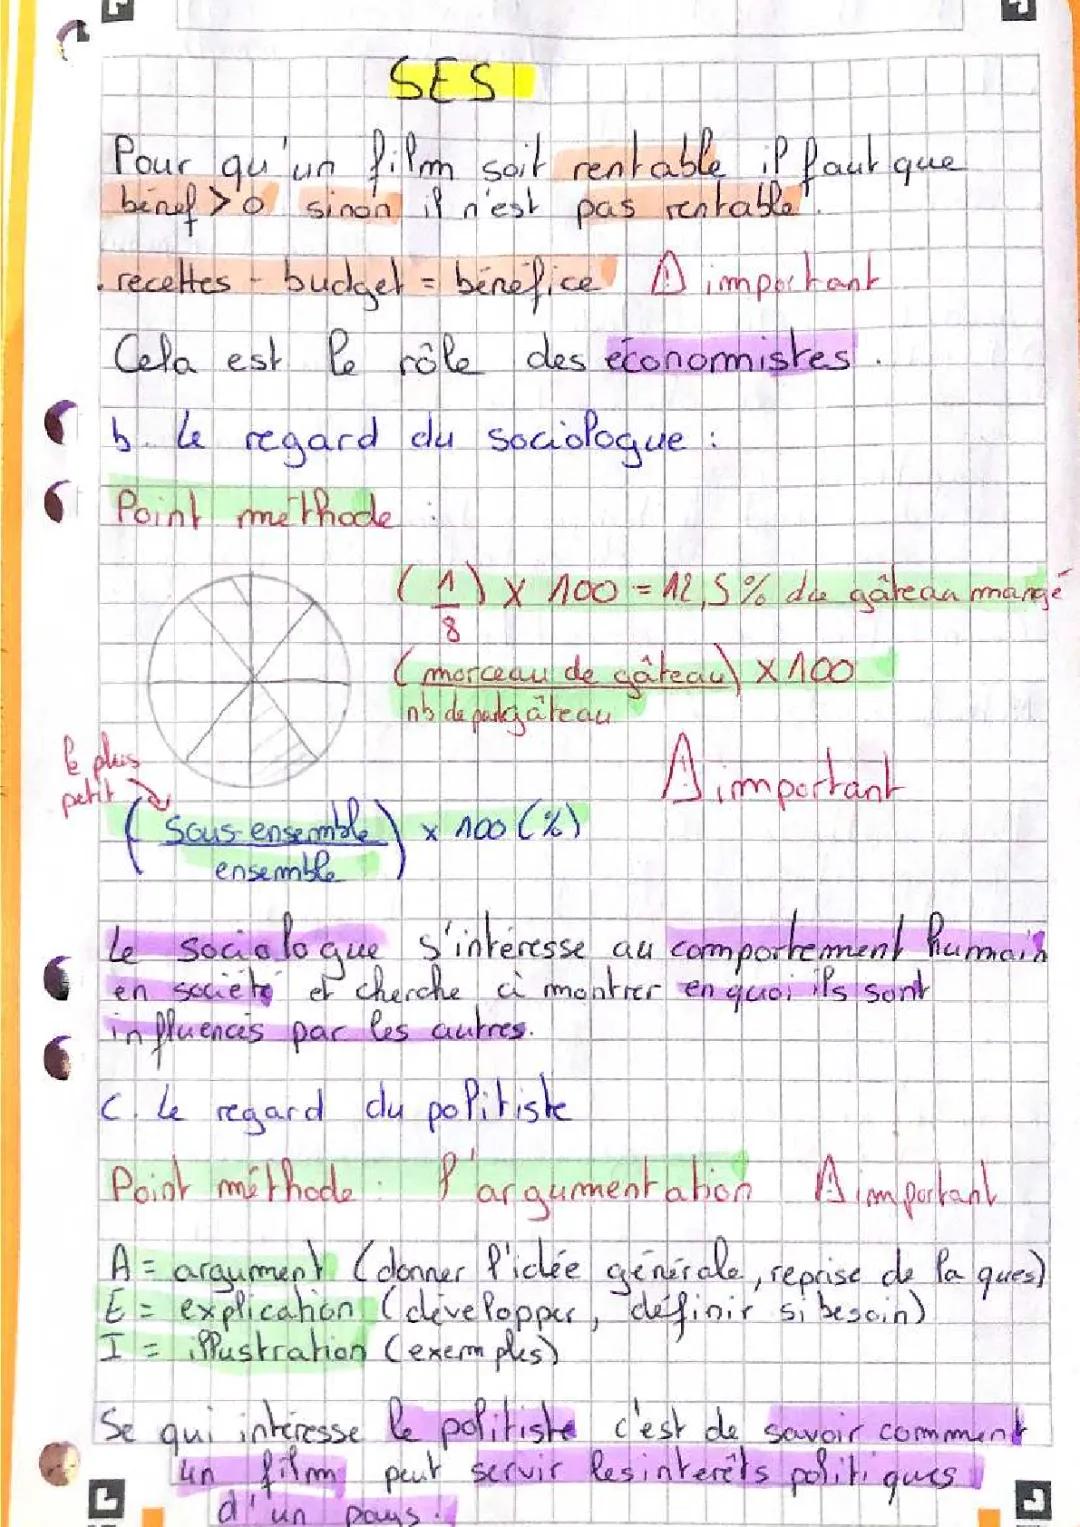 SES
Pour qu'un film soit rentable il faut que
bénef > 0 sinon il n'est pas rentable.
recettes - budget = bénéfice ⚠ important
Cela est le rôle des économistes.
b. Le regard du sociologue :
Point méthode :
(1/8) x 100 = 12,5% du gâteau mangé
(morceau de gâteau / nb de part gâteau) x 100
le plus
petit
⚠ important
(sous-ensemble / ensemble) x 100 (%)
Le sociologue s'intéresse au comportement humain
en société et cherche à montrer en quoi ils sont
influencés par les autres.
C. Le regard du politiste
Point méthode : l'argumentation ⚠ important
A = argument (donner l'idée générale, reprise de la ques)
E = explication (développer, définir si besoin)
I = illustration (exemples)
Se qui intéresse le politiste c'est de savoir comment
un film peut servir les interêts politiques
d'un pays.